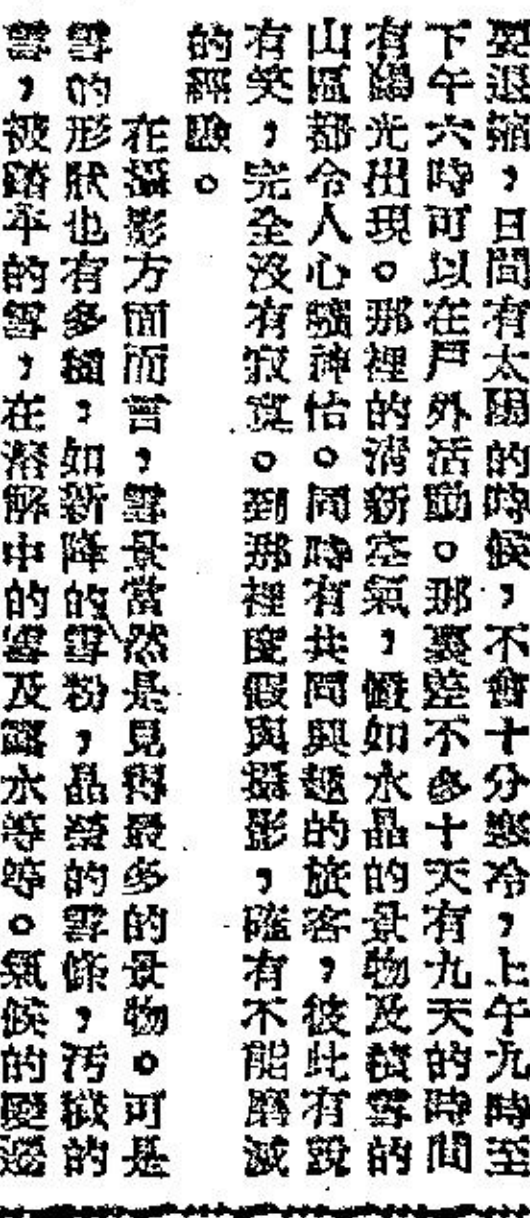 要退縮，日間有太陽的時候，不會十分寒冷，上午九時至
下午六時可以在戶外活動。那裏差不多十天有九天的時間
有陽光出現。那裡的清新空氣，儼如水晶的景物及積雪的
山區都令人心曠神怡。同時有共同興趣的旅客，彼此有說
有笑，完全沒有寂寞。到那裡度假與攝影，確有不能磨滅
的經驗。
在攝影方面而言，雪景當然是見得最多的景物。可是
雪的形狀也有多種，如新降的雪粉，晶瑩的雪條，污穢的
雪，被踏平的雪，在溶解中的雪及露水等等。氣候的變遷